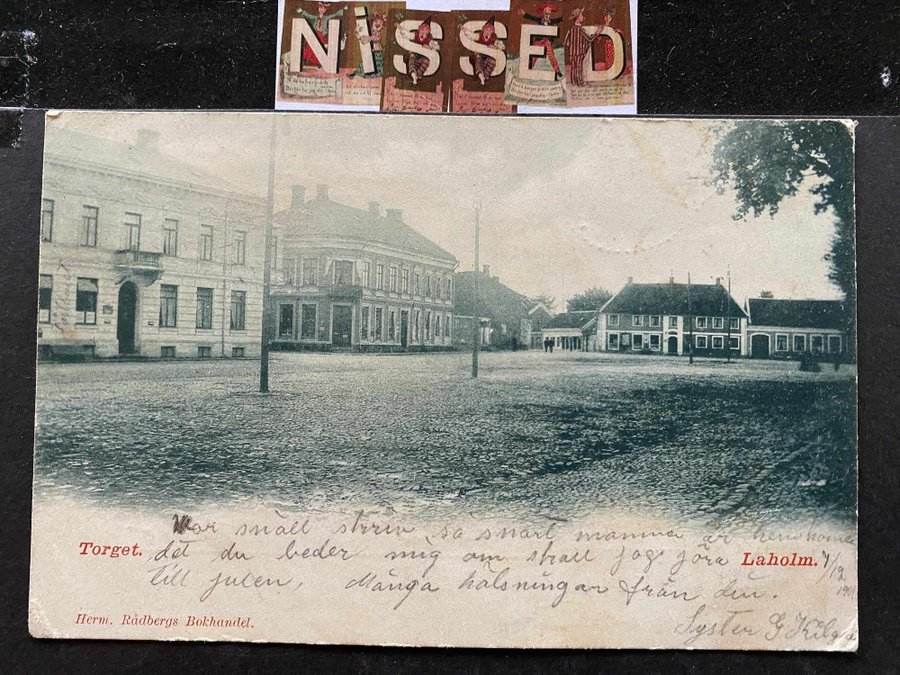 NiSSED
Var snäll skriv så snart mamma är hemkommen
Torget. det du beder mig om skall jag göra Laholm. 7/12
till julen. Många hälsningar från din. 1901
Syster G
Herm. Rådbergs Bokhandel.